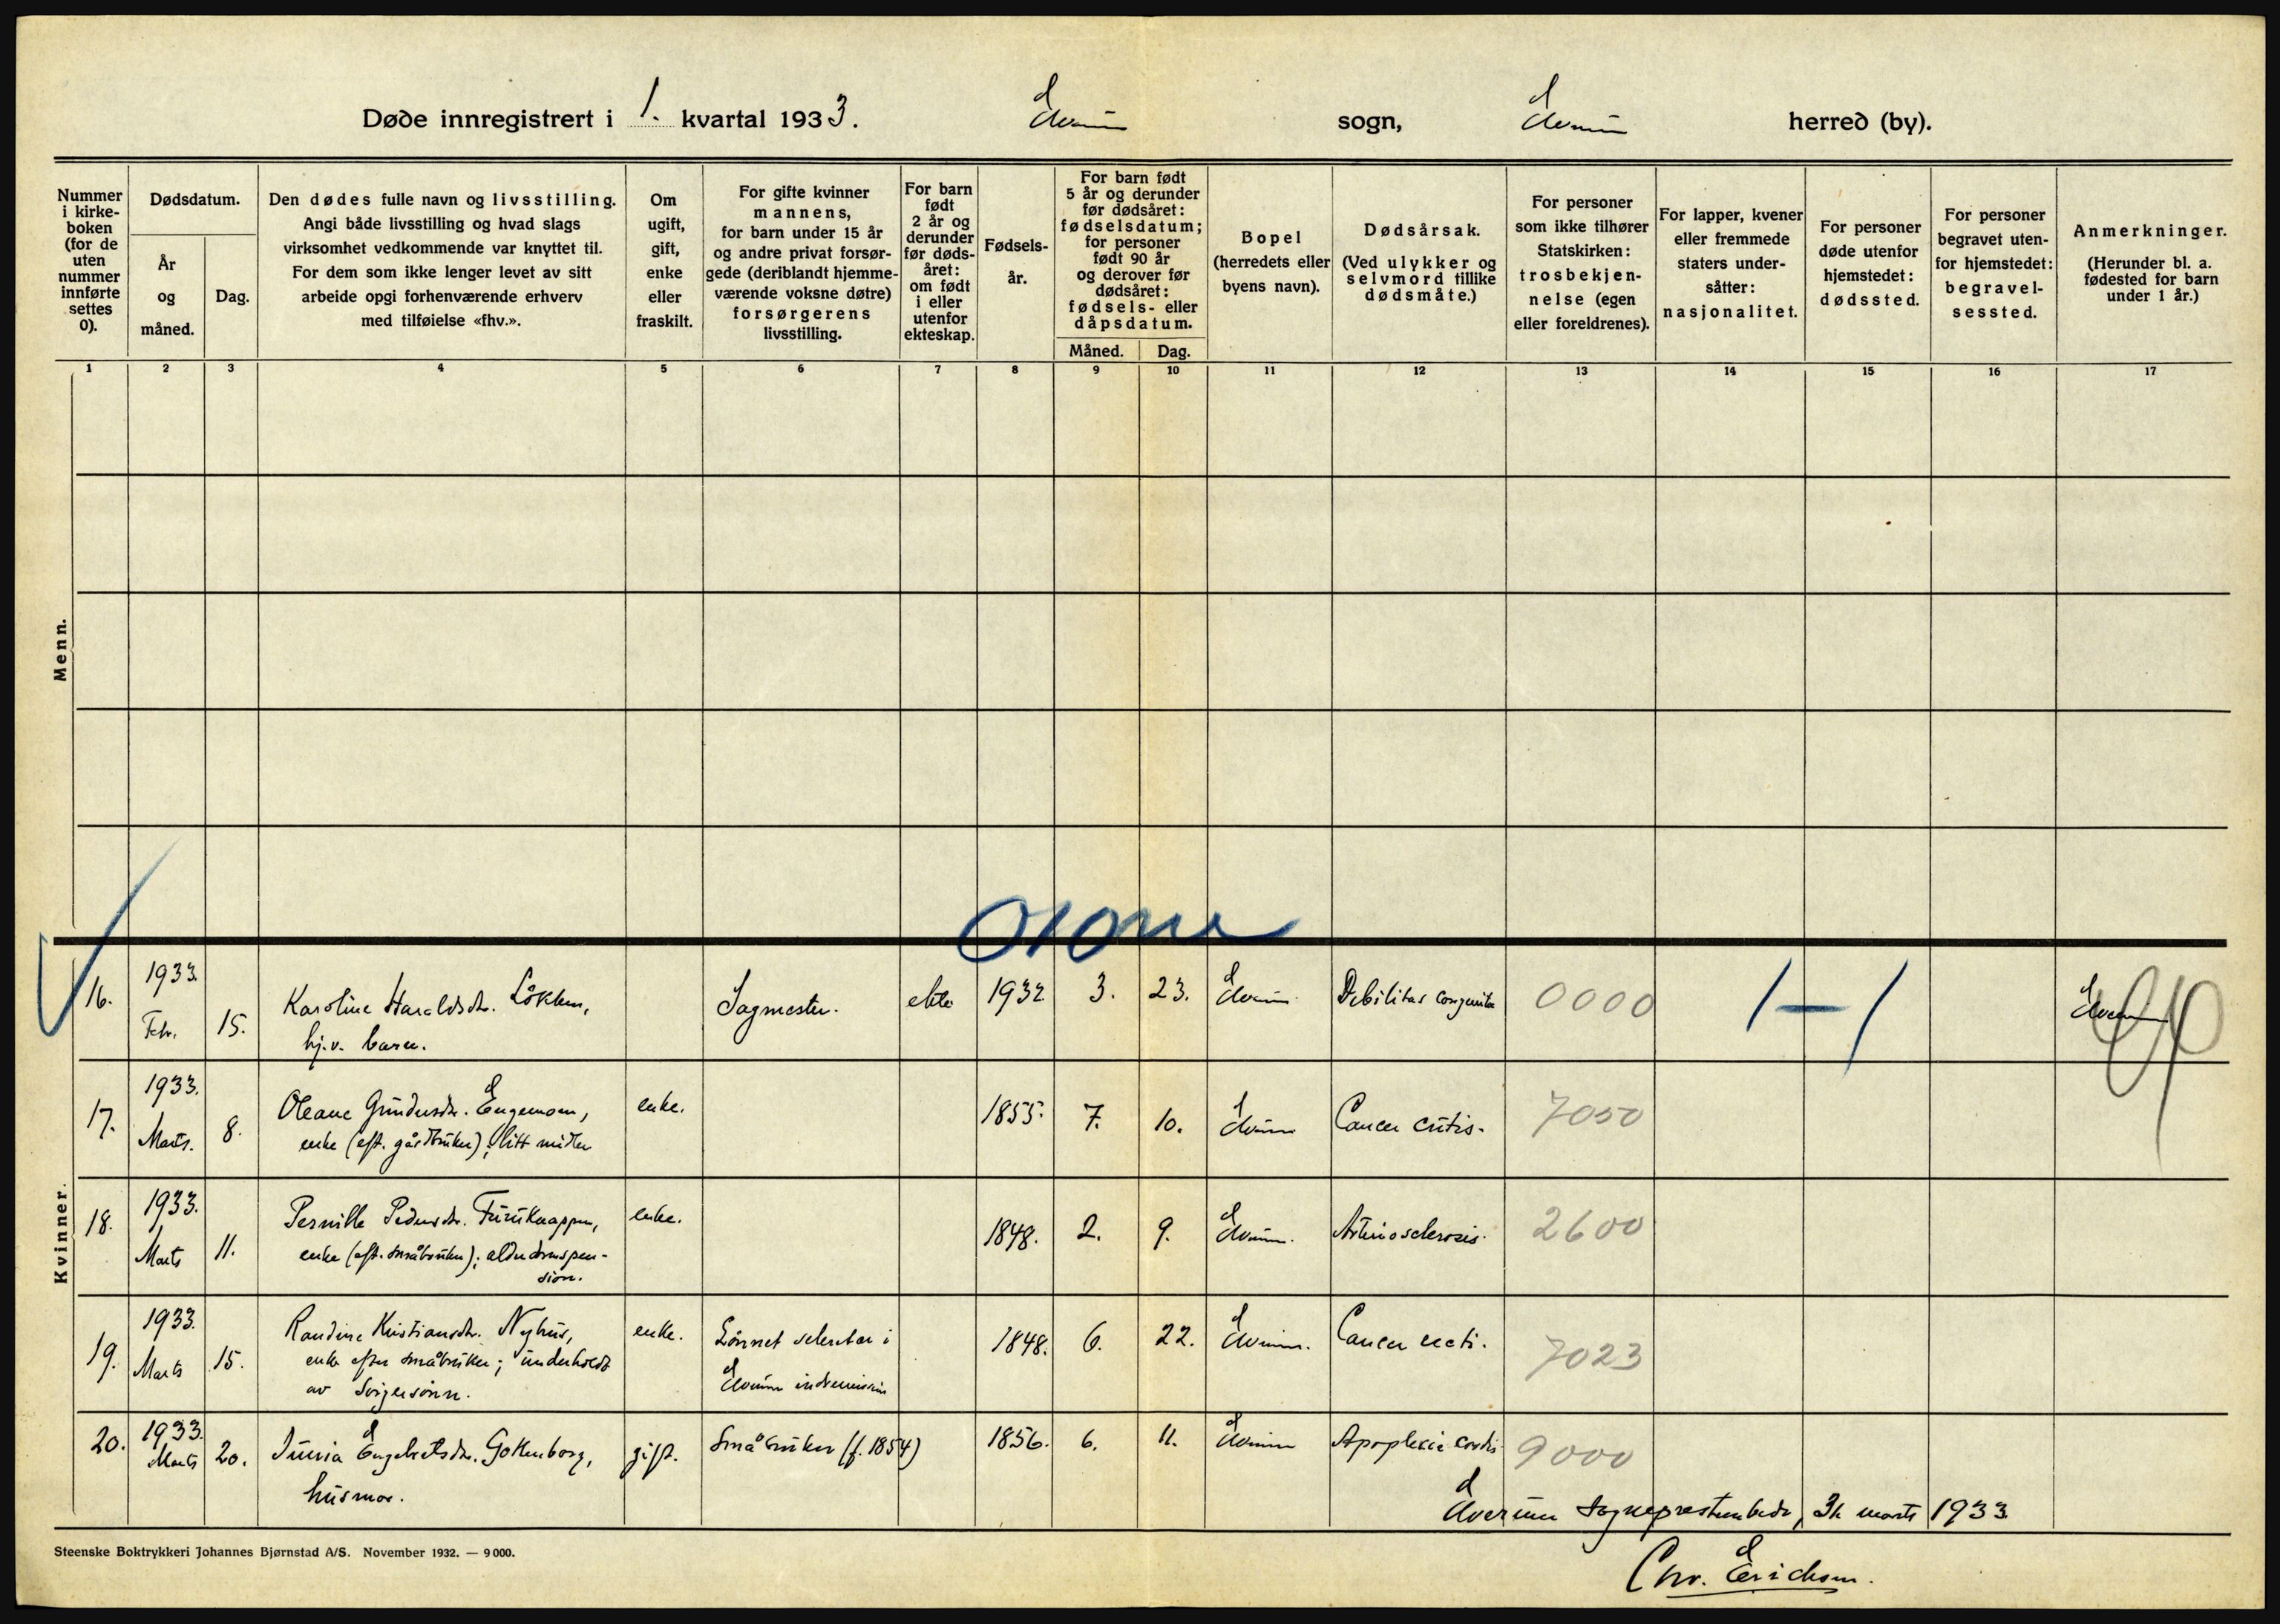 Døde innregistrert i 1. kvartal 1933. Elverum sogn, Elverum herred (by).
Nummer i kirke-boken (for de uten nummer innførte settes 0).
Dødsdatum.
År og måned.
Dag.
Den dødes fulle navn og livsstilling.
Angi både livsstilling og hvad slags
virksomhet vedkommende var knyttet til.
For dem som ikke lenger levet av sitt
arbeide opgi forhenværende erhverv
med tilføielse «fhv.».
Om ugift, gift, enke eller fraskilt.
For gifte kvinner
mannens,
for barn under 15 år
og andre privat forsør-
gede (deriblandt hjemme-
værende voksne døtre)
forsørgerens
livsstilling.
For barn
født
2 år og
derunder
før døds-
året:
om født
i eller
utenfor
ekteskap.
Fødsels-
år.
For barn født
5 år og derunder
før dødsåret:
fødselsdatum;
for personer
født 90 år
og derover før
dødsåret:
fødsels- eller
dåpsdatum.
Måned.
Dag.
Bopel
(herredets eller
byens navn).
Dødsårsak.
(Ved ulykker og
selvmord tillike
dødsmåte.)
For personer
som ikke tilhører
Statskirken:
trosbekjen-
nelse (egen
eller foreldrenes).
For lapper, kvener
eller fremmede
staters under-
såtter:
nasjonalitet.
For personer
døde utenfor
hjemstedet:
dødssted.
For personer
begravet uten-
for hjemstedet:
begravel-
sessted.
Anmerkninger.
(Herunder bl. a.
fødested for barn
under 1 år.)
1 2 3 4 5 6 7 8 9 10 11 12 13 14 15 16 17
Menn.
Kvinner.
16. 1933. Febr. 15. Karoline Haraldsdtr. Løkken, hj.v. barn. Sagmester. ekte 1932 3. 23. Elverum. Debilitas congenita 0000 1–1 Elverum
17. 1933. Marts. 8. Oleane Gundersdtr. Engemoen, enke (eft. gårdbruker); litt midler enke. 1855. 7. 10. Elverum Cancer cutis. 7050
18. 1933. Marts 11. Pernille Pedersdtr. Furuknappen, enke (eft. småbruker); alderdomspen-
sion. enke. 1848. 2. 9. Elverum. Arteriosclerosis. 2600
19. 1933. Marts 15. Randine Kristiansdtr. Nyhus, enke efter småbruker; underholdt av svigersønn. enke. Lønnet sekretær i Elverum 1848. 6. 22. Elverum. Cancer recti. 7023
20. 1933. Marts 20. Engebretsdtr. husmor. gift. Småbruker (f. 1854) 1856. 6. 11. Elverum Apoplexia cordis 9000
Elverum sogneprestembede, 31 marts 1933
Chr. Erichsen.
Steenske Boktrykkeri Johannes Bjørnstad A/S. November 1932. — 9000.